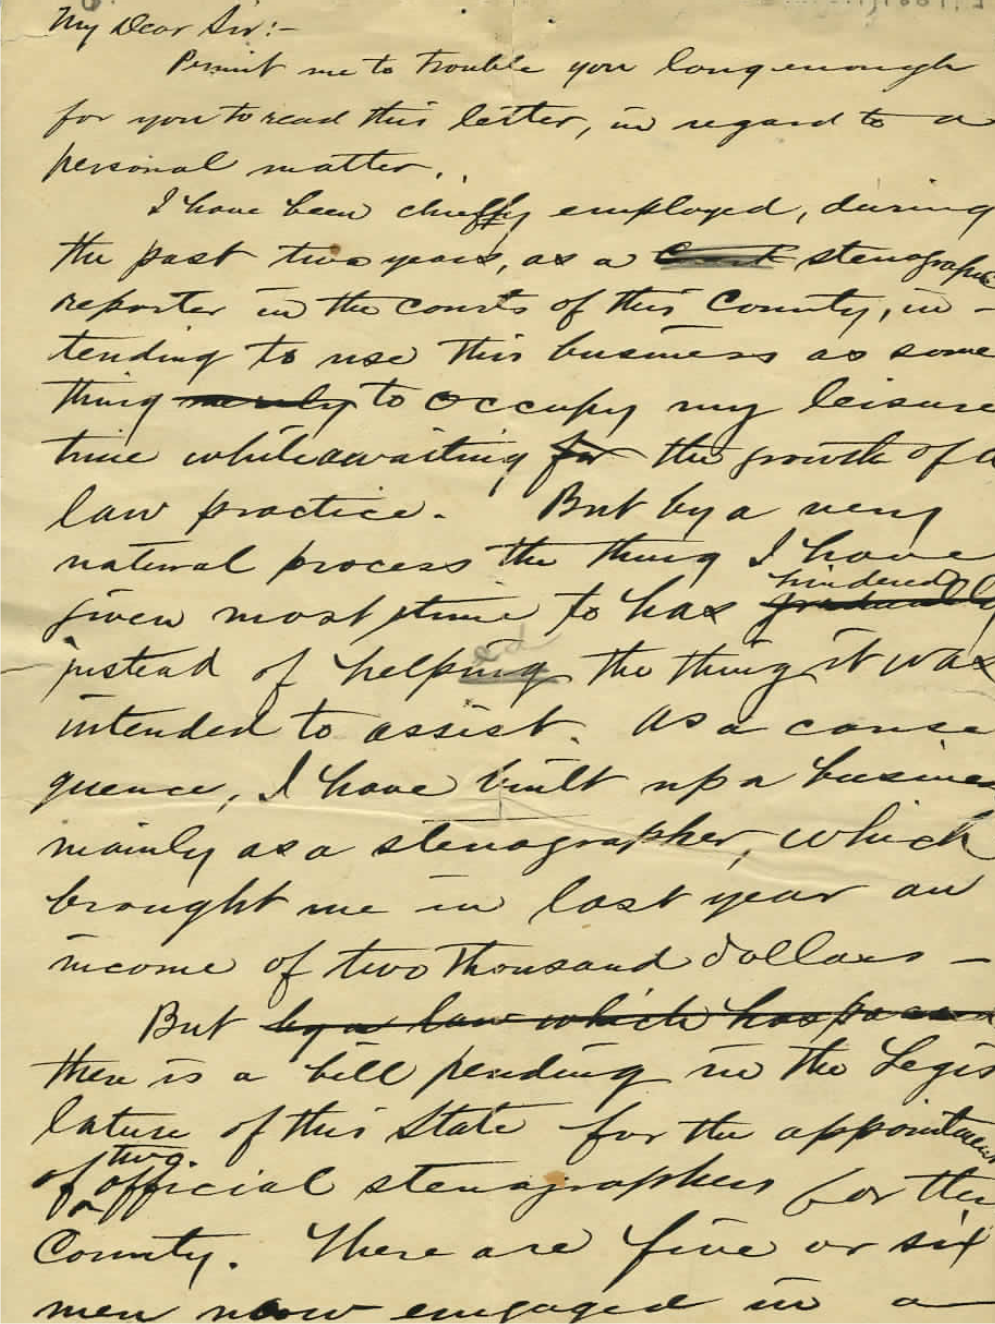 My Dear Sir:-
Permit me to trouble you long enough
for you to read this letter, in regard to a
personal matter.
I have been chiefly employed, during
the past two years, as a stenographic
reporter in the courts of this County, in-
tending to use this business as some
thing merely to occupy my leisure
time while awaiting for the growth of a
law practice. But by a very
natural process the thing I have
hindered
given most time to has gradually
ed
instead of helping the thing it was
intended to assist. As a conse
quence, I have built up a business
mainly as a stenographer, which
brought me in last year an
income of two thousand dollars -
But by a law which has passed
there is a bill pending in the Legis
lature of this State for the appointment
two
of official stenographers for the
County. There are five or six
men now engaged in a